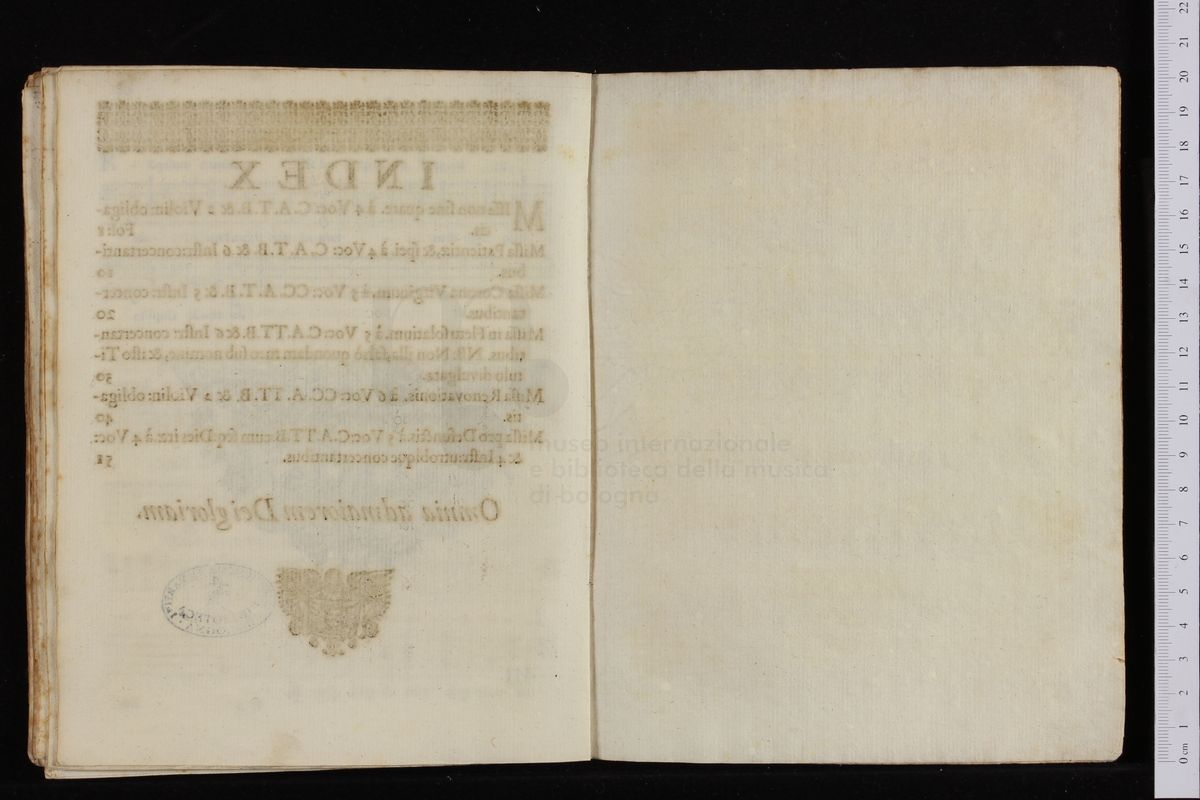 INDEX
Missarum sine quare. à 4 Voc: C. A. T. B. & 2 Violin: obliga-
tis. Fol: 1
Missa Patientiæ, & spei. à 4 Voc: C. A. T. B. & 6 Instr: concertanti-
bus. 10
Missa Virginum. à 5 Voc: CC. A. T. B. & 5 Instr: concer-
tantibus. 20
Missa in à 5 Voc: C. A. TT. B. & 6 Instr: concertan-
tibus. NB. Non illa, quondam meo sub nomine, & isto Ti-
tulo divulgata. 30
Missa Renovationis. à 6 Voc: CC. A. TT. B. & 2 Violin: obliga-
tis. 40
Missa pro Defunctis. à 5 Voc: C. A. TT. B. cum seq: Dies iræ. à 4 Voc:
& 4 Instr: utrobique concertantibus. 51
Omnia ad maiorem Dei gloriam.
museo internazionale
e biblioteca della musica
di bologna
0 cm 1 2 3 4 5 6 7 8 9 10 11 12 13 14 15 16 17 18 19 20 21 22